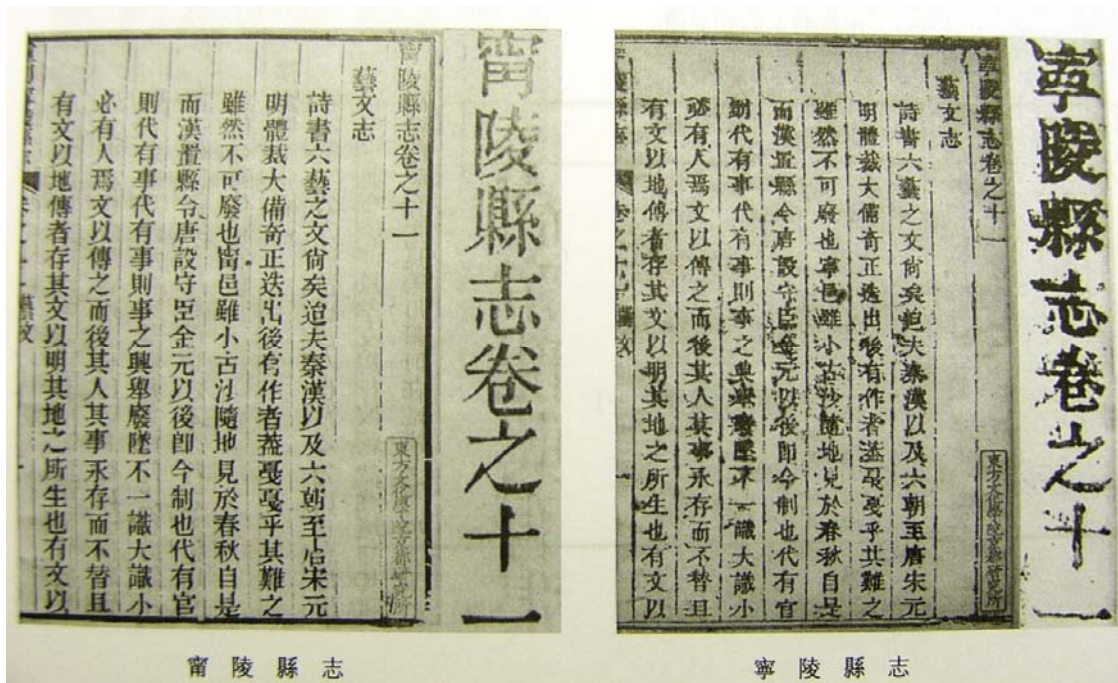 甯陵縣志卷之十一
甯陵縣志卷之十一
東方文化學院京都研究所
藝文志
詩書六藝之文尙矣迨夫秦漢以及六朝至唐宋元
明體裁大備奇正迭出後有作者葢戞戞乎其難之
雖然不可廢也甯邑雖小古沙隨地見於春秋自是
而漢置縣令唐設守臣金元以後卽今制也代有官
則代有事代有事則事之興舉廢墜不一識大識小
必有人焉文以傳之而後其人其事永存而不替且
有文以地傳者存其文以明其地之所生也有文以
甯陵縣志
寧陵縣志卷之十一
寧陵縣志卷之十一
東方文化學院京都研究所
藝文志
詩書六藝之文尙矣迨夫秦漢以及六朝至唐宋元
明體裁大備奇正迭出後有作者葢戞戞乎其難之
雖然不可廢也寧邑雖小古沙隨地見於春秋自是
而漢置縣令唐設守臣金元以後卽今制也代有官
則代有事代有事則事之興舉廢墜不一識大識小
必有人焉文以傳之而後其人其事永存而不替且
有文以地傳者存其文以明其地之所生也有文以
寧陵縣志